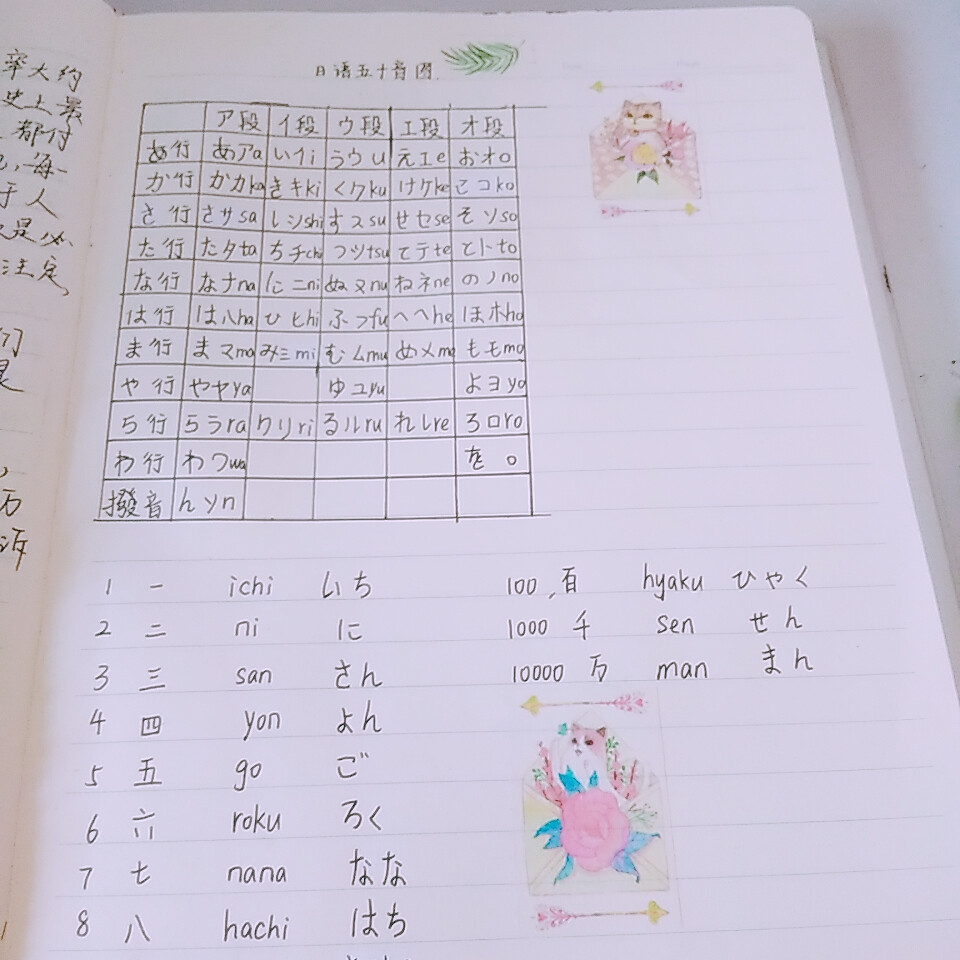 率大约
史上最
都付
每一
于人
是必
注定,
日语五十音图
ア段 イ段 ウ段 エ段 オ段
あ行 あアa いイi うウu えエe おオo
か行 かカka きキki くクku けケke こコko
さ行 さサsa しシshi すスsu せセse そソso
た行 たタta ちチchi つツtsu てテte とトto
な行 なナna にニni ぬヌnu ねネne のノno
は行 はハha ひヒhi ふフfu へヘhe ほホho
ま行 まマma みミmi むムmu めメme もモmo
や行 やヤya ゆユyu よヨyo
ら行 らラra りリri るルru れレre ろロro
わ行 わワwa を o
撥音 んンn
1 一 ichi いち
2 二 ni に
3 三 san さん
4 四 yon よん
5 五 go ご
6 六 roku ろく
7 七 nana なな
8 八 hachi はち
100 百 hyaku ひゃく
1000 千 sen せん
10000 万 man まん